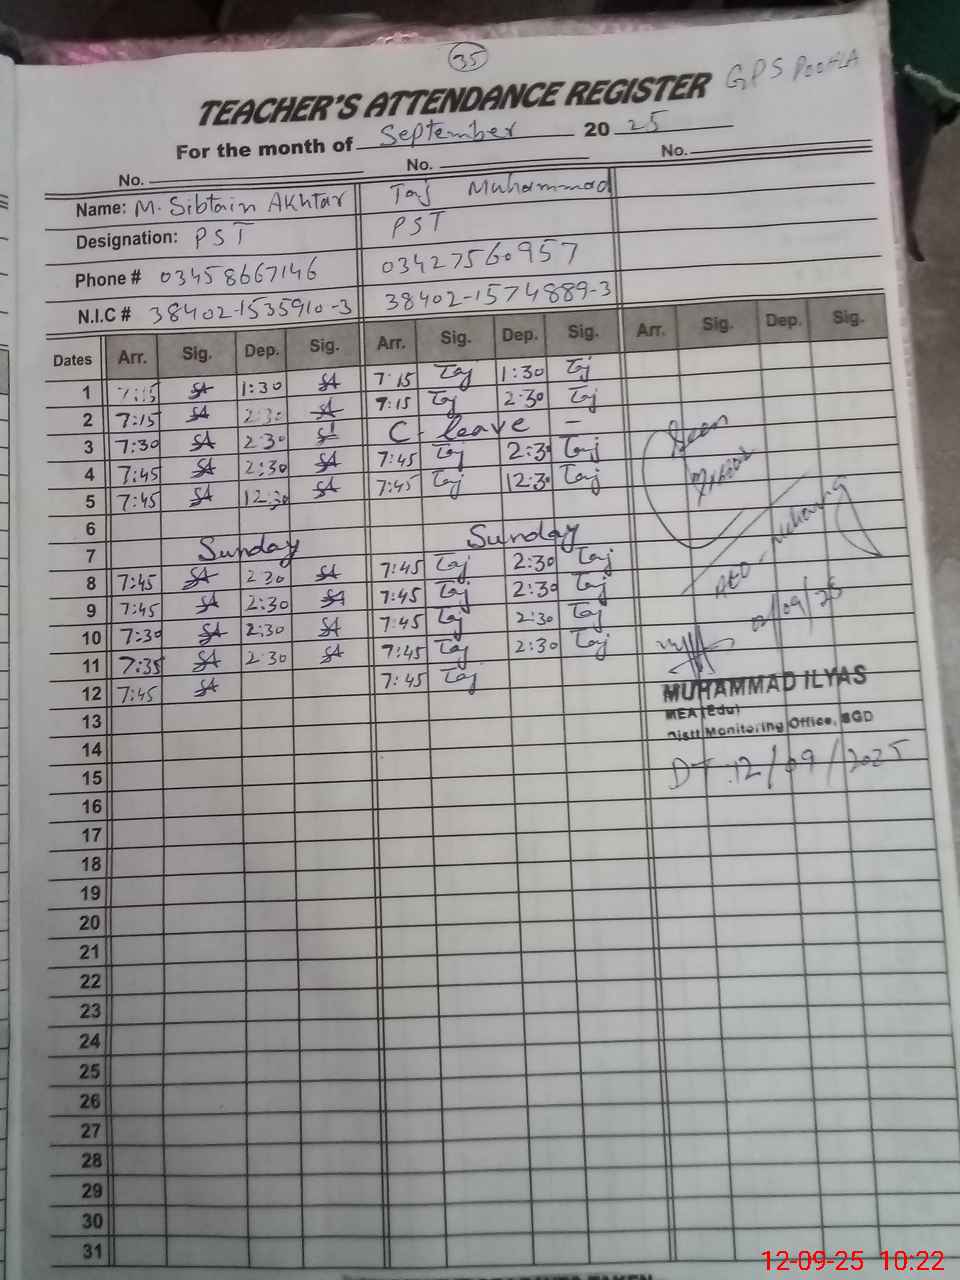 35
TEACHER'S ATTENDANCE REGISTER GPS POOHLA
For the month of September 20 25
No. No. No.
Name: M. Sibtain Akhtar Taj Muhammad
Designation: PST PST
Phone # 03458667146 03427560957
N.I.C # 38402-1535910-3 38402-1574889-3
Dates Arr. Sig. Dep. Sig. Arr. Sig. Dep. Sig. Arr. Sig. Dep. Sig.
1 7:15 SA 1:30 SA 7:15 Taj 1:30 Taj
2 7:15 SA 2:30 SA 7:15 Taj 2:30 Taj
3 7:30 SA 2:30 SA C. leave -
4 7:45 SA 2:30 SA 7:45 Taj 2:30 Taj
5 7:45 SA 12:30 SA 7:45 Taj 12:30 Taj
6
7 Sunday Sunday
8 7:45 SA 2:30 SA 7:45 Taj 2:30 Taj
9 7:45 SA 2:30 SA 7:45 Taj 2:30 Taj
10 7:30 SA 2:30 SA 7:45 Taj 2:30 Taj
11 7:35 SA 2:30 SA 7:45 Taj 2:30 Taj
12 7:45 SA 7:45 Taj
Seen
/09/25
MUHAMMAD ILYAS
MEA (Edu)
Distt Monitoring Office, SGD
DT 12/09/2025
13
14
15
16
17
18
19
20
21
22
23
24
25
26
27
28
29
30
31
12-09-25 10:22